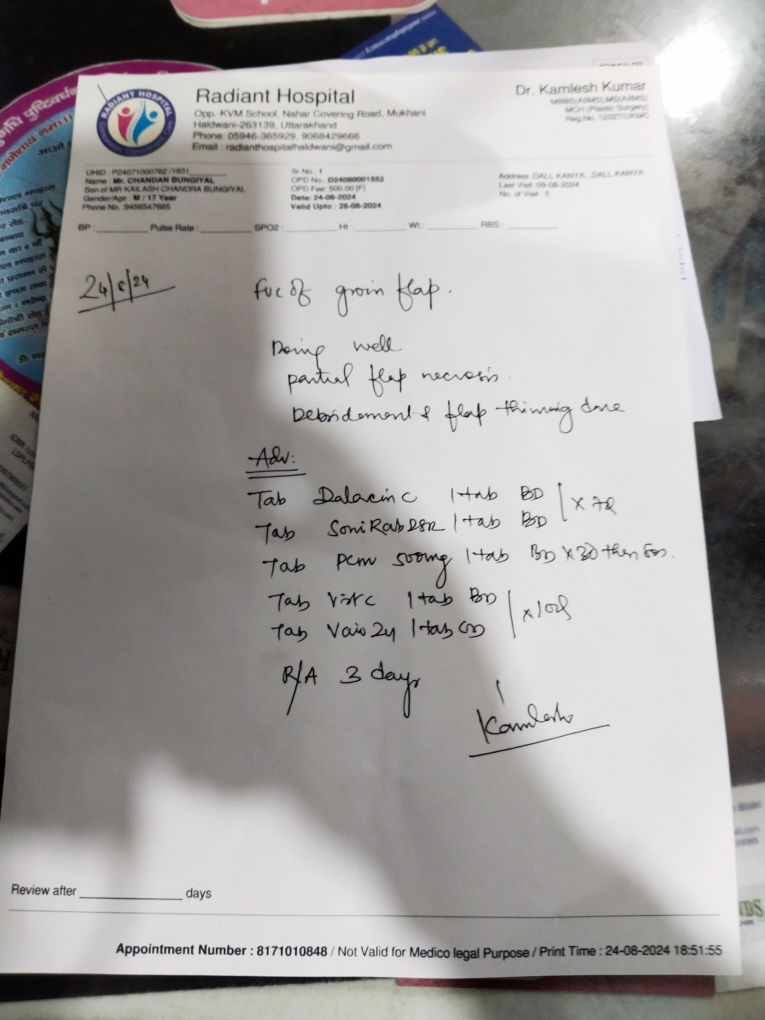 RADIANT HOSPITAL
Radiant Hospital
Opp.-KVM School, Nahar Covering Road, Mukhani
Haldwani-263139, Uttarakhand
Phone: 05946-365929, 9068429666
Email : radianthospitalhaldwani@gmail.com
Dr. Kamlesh Kumar
MCH (Plastic Surgery)
UHID : P24071000762 /1931
Name : Mr. CHANDAN BUNGIYAL
Son of MR KAILASH CHANDRA BUNGIYAL
Gender/Age : M / 17 Year
Phone No. 9456547665
Sr No. : 1
OPD No. D24080001552
OPD Fee: 500.00 [F]
Date: 24-08-2024
Valid Upto : 28-08-2024
Address: DALL KANYA, ,DALL KANYA
Last Visit :09-08-2024
No. of Visit : 5
BP : Pulse Rate : SPO2 : Ht : Wt. : RBS :
24/8/24
FUC of groin flap.
Doing well
partial flap necrosis.
Debridement & flap thinning done
Adv:
Tab Dalacin C 1 tab BD
Tab 1 tab BD
Tab PCM 500mg 1 tab BD then SOS.
Tab 1 tab BD
Tab 1 tab OD
R/A 3 days
Kamlesh
Review after days
Appointment Number : 8171010848 / Not Valid for Medico legal Purpose / Print Time : 24-08-2024 18:51:55